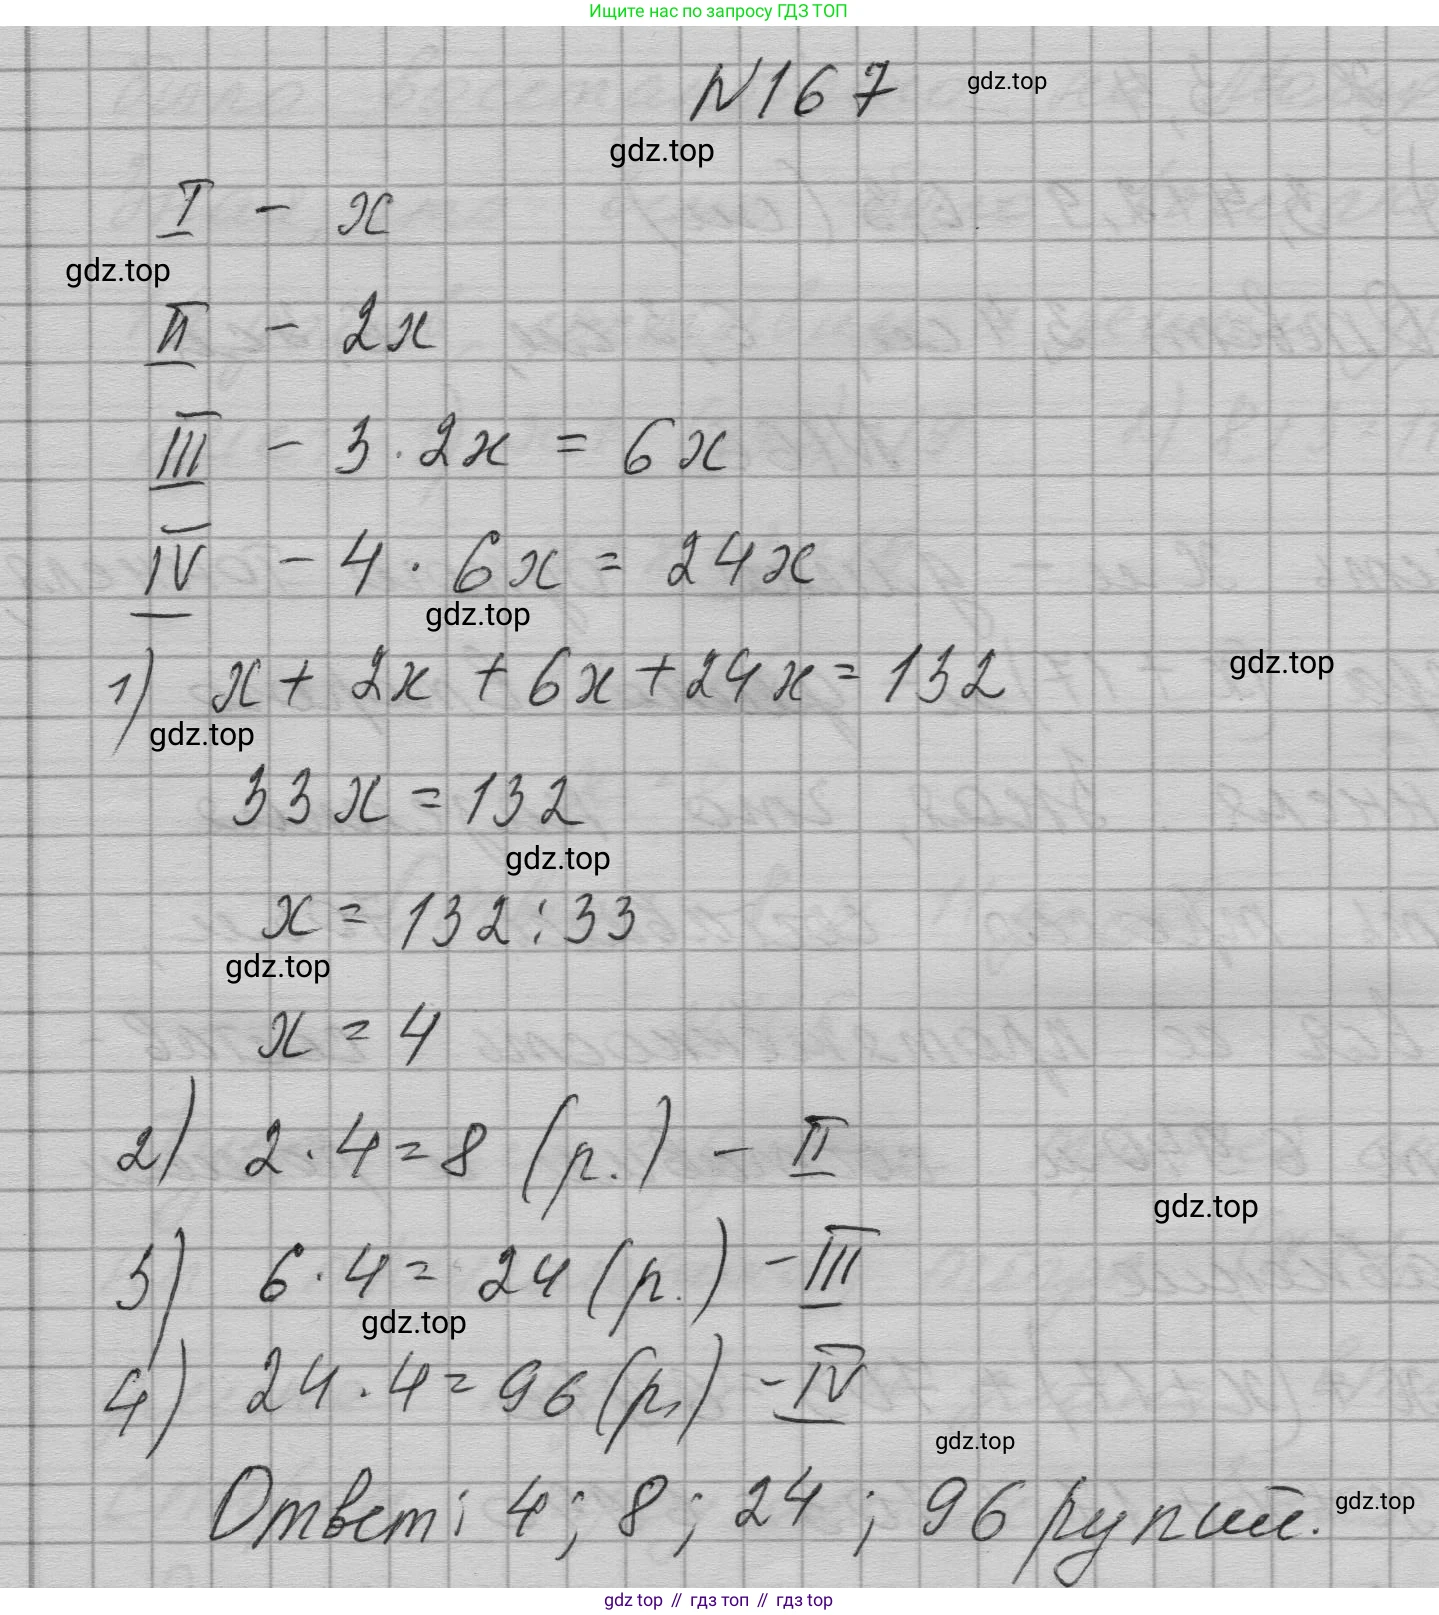 Ищите нас по запросу ГДЗ ТОП
N167
gdz.top
gdz.top
I - x
gdz.top
II - 2x
III - 3·2x = 6x
IV - 4·6x = 24x
gdz.top
1) x + 2x + 6x + 24x = 132
gdz.top
gdz.top
33x = 132
gdz.top
x = 132 : 33
gdz.top
x = 4
2) 2·4 = 8 (р.) - II
gdz.top
3) 6·4 = 24 (р.) - III
gdz.top
4) 24·4 = 96 (р.) - IV
gdz.top
Ответ: 4; 8; 24; 96 рупий.
gdz.top
gdz top // гдз топ // гдз top